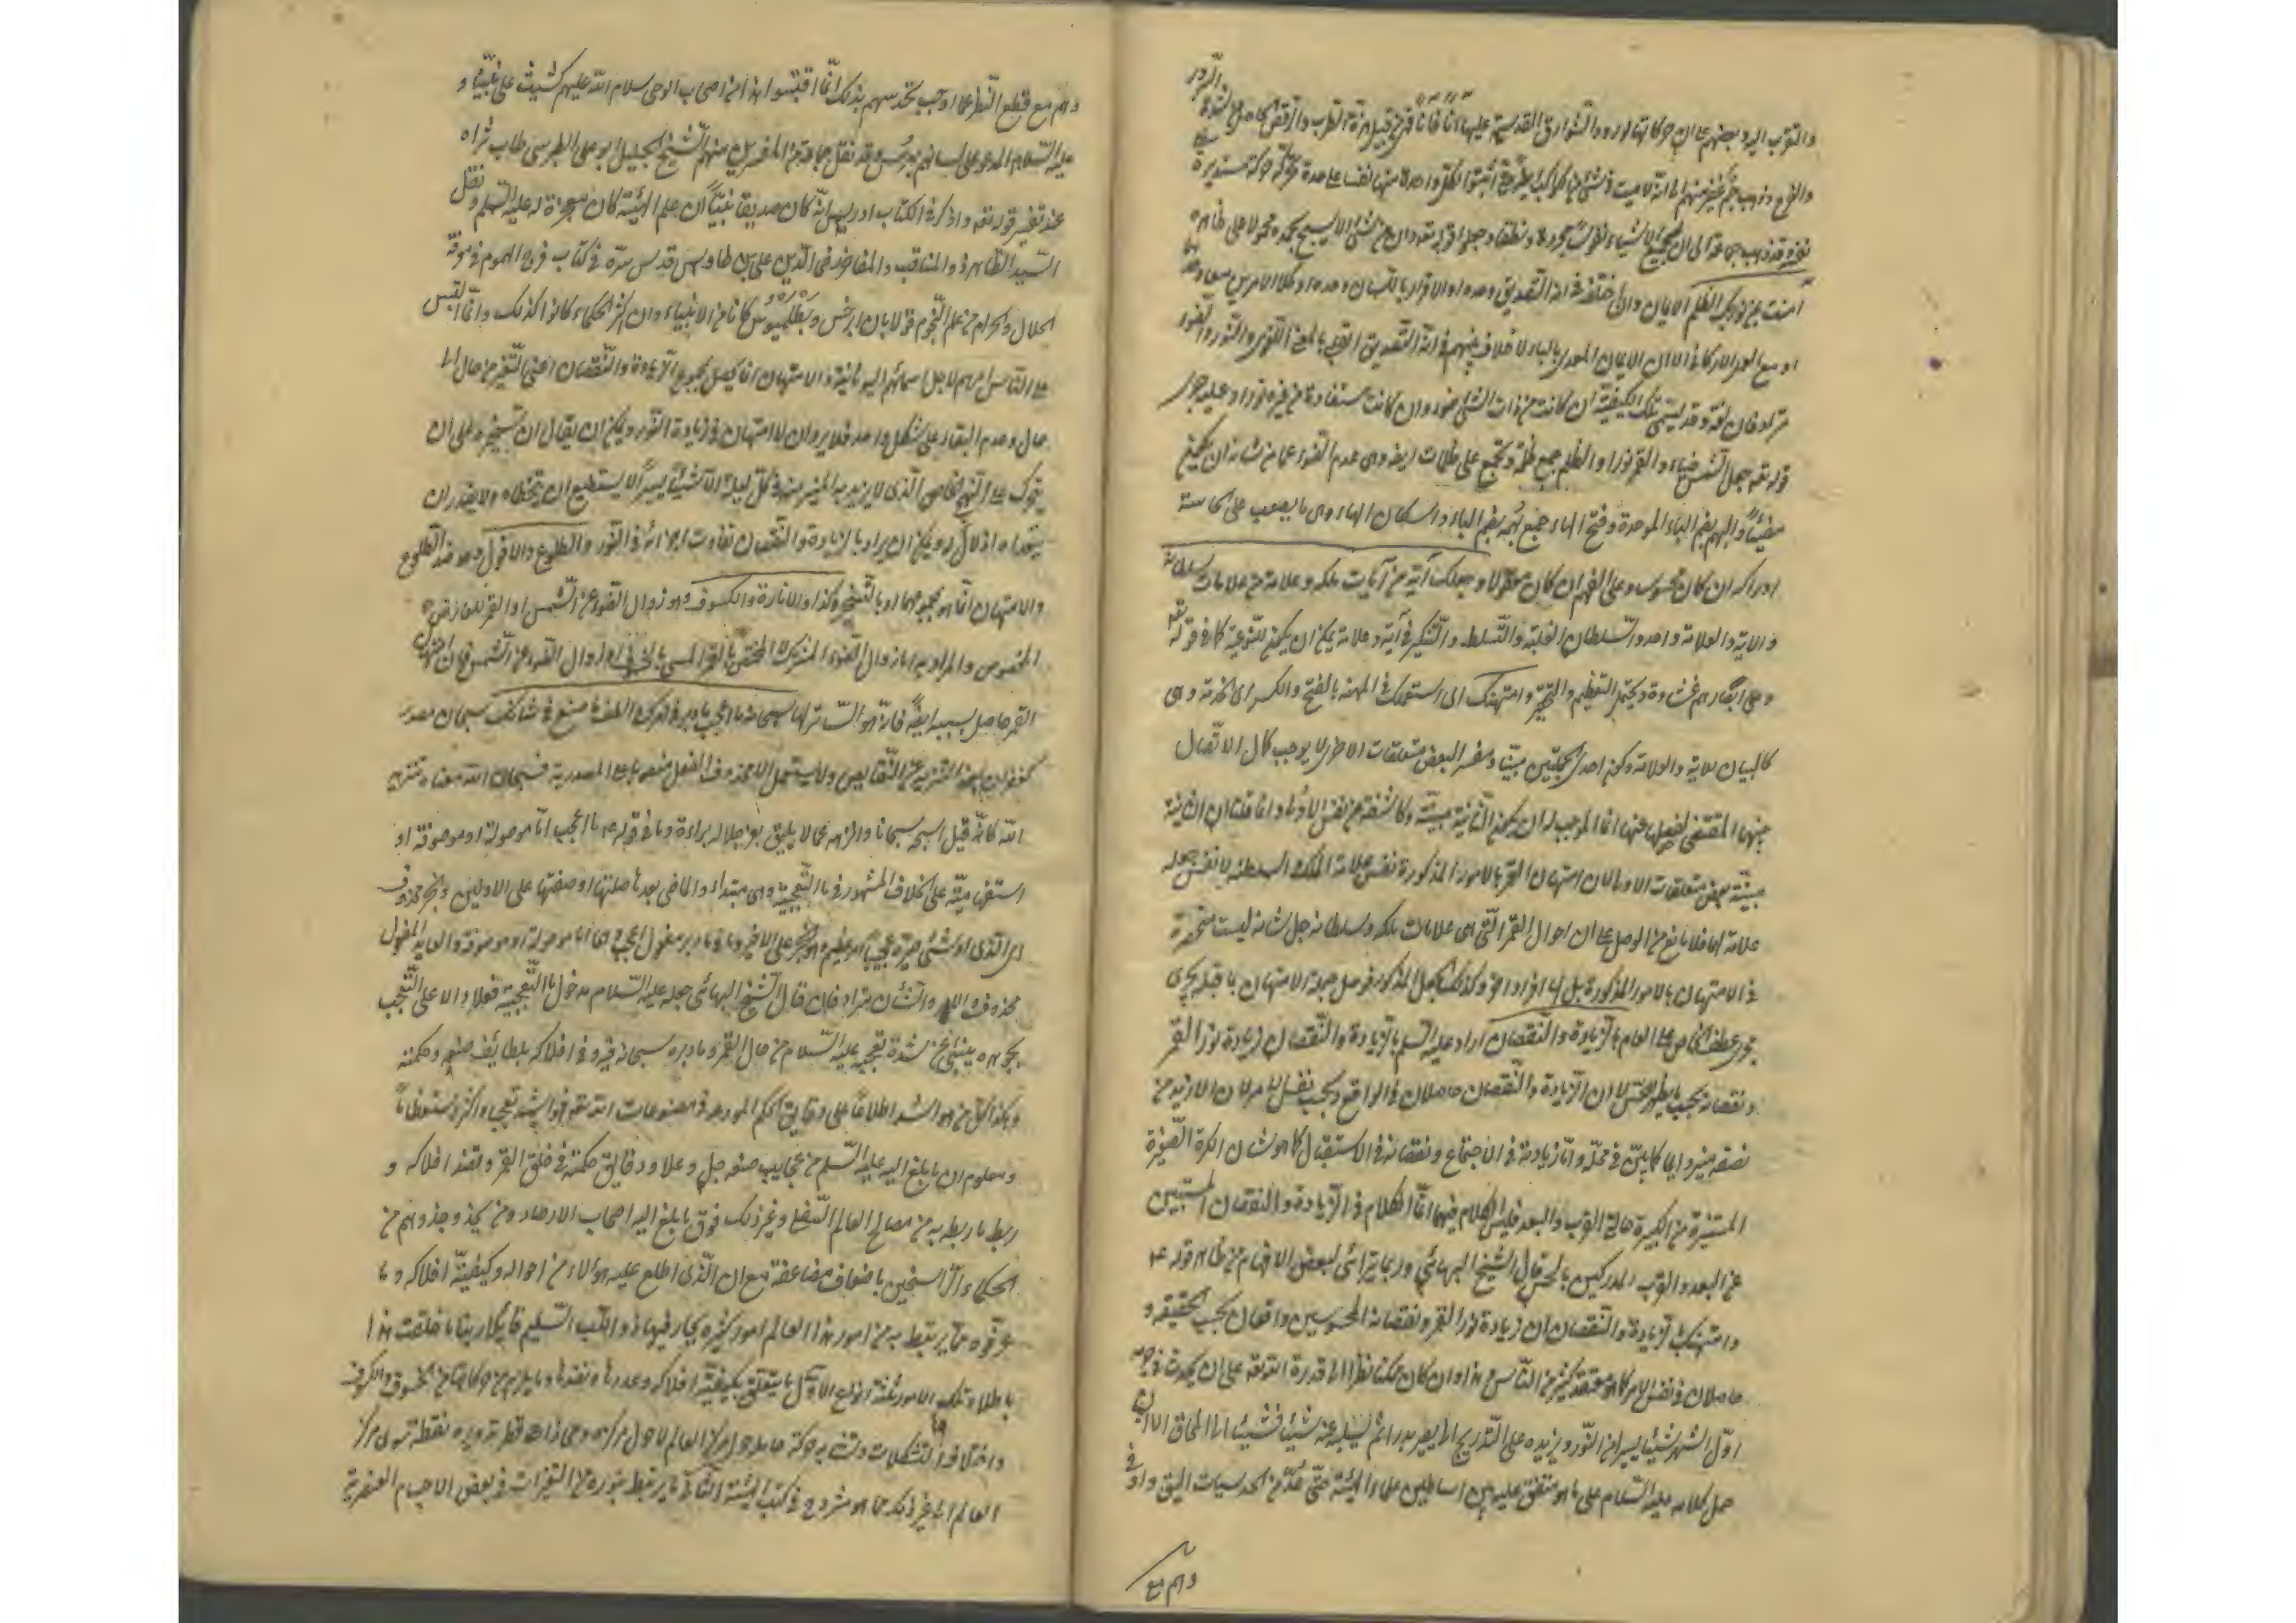 والتقرب اليه وبعضهم على ان حركاتها لورود الشوارق القدسية عليها آنا فآنا فهي من قبيل هزة الطرب والرقص الحاصل من شدة السرور
والفرح وذهب جم غفير منهم الى انه لا ميت في شيء من الكواكب ايضا حتى اثبتوا لكل واحدة منها نفسا على حدة تحركه حركة مستديرة
على نفسه وقد ذهب جماعة الى ان لجميع الاشياء نفوسا مجردة ونطقا وجعلوا قوله تعالى وان من شيء الا يسبح بحمده محمولا على ظاهره
آمنت بمن نور بك الظلم الايمان وان اختلف في انه التصديق وحده او الاقرار باللسان وحده او كلا الامرين معا وحدهما
او مع العمل بالاركان الا ان الايمان المعدى بالباء لا خلاف بينهم في انه التصديق القلبي بالمعنى اللغوي والنور والضوء
مترادفان لغة وقد يسمى تلك الكيفية ان كانت من ذات الشيء ضوءا وان كانت مستفادة من غيره نورا وعليه جرى
قوله تعالى جعل الشمس ضياء والقمر نورا والظلم جمع ظلمة وتجمع على ظلمات ايضا وهي عدم الضوء عما من شانه ان يكون
مضيئا والبهم بضم الباء الموحدة وفتح الهاء جمع بهمة بضم الباء واسكان الهاء وهي ما يصعب على الحاسة
ادراكه ان كان محسوسا وعلى الفهم ان كان معقولا وجعلك آية من آيات ملكه وعلامة من علامات سلطانه
والاية والعلامة واحد والسلطان الغلبة والتسلط والتنكير في آية وعلامة يمكن ان يكون للنوعية كما في قوله تعالى
وعلى ابصارهم غشاوة ويحتمل التعظيم والتحقير وامتهنك اى استعملك في المهنة بالفتح والكسر اى الخدمة وهي
كالبيان للاية والعلامة وكون احدى الجملتين مبينا ومفسرا لبعض متعلقات الاخرى لا يوجب كمال الاتصال
بينهما المقتضي لفصلها عنها انما الموجب له ان يكون الثانية مبينة وكاشفة عن نفس الاولى وانما قلنا ان الثانية
مبينة بعض متعلقات الاولى لان امتهان القمر بالامور المذكورة نفس علامة الملك والسلطنة لا نفس جعله
علامة لها فلا مانع من الوصل على ان احوال القمر التي هي علامات ملكه وسلطانه جل شانه ليست منحصرة
في الامتهان بالامور المذكورة بل لها افراد اخر وكذلك الجعل المذكور فوصل جملة الامتهان بما قبلها يجري
مجرى عطف الخاص على العام بالزيادة والنقصان اراد عليه السلم بالزيادة والنقصان زيادة نور القمر
ونقصانه بحسب ما يظهر للحس لا ان الزيادة والنقصان حاصلان في الواقع وبحسب نفس الامر لان الازيد من
نصفه منير دائما كما بين في محله واما زيادته في الاجتماع ونقصانه في الاستقبال كما هو شان الكرة الصغيرة
المستنيرة من الكبيرة حالة القرب والبعد فليس الكلام فيها انما الكلام في الزيادة والنقصان المسببين
عن البعد والقرب المدركين بالحس قال الشيخ البهائي وربما يترائى لبعض الافهام من ظاهر قوله ع
وامتهنك بالزيادة والنقصان ان زيادة نور القمر ونقصانه المحسوسين واقعان بحسب الحقيقة و
حاصلان في نفس الامر كما هو معتقد كثير من الناس وهذا وان كان ممكنا نظرا الى قدرة الله تعالى على ان يحدث في جرمه
اول الشهر شيئا يسيرا من النور ويزيده على التدريج الى ان يصير بدرا ثم يسلبه عنه شيئا فشيئا الى المحاق الا ان
حمل كلامه عليه السلام على ما هو متفق عليه بين اساطين علماء الهيئة حتى عد من الحدسيات اليق واولى
وهم مع
وهم مع قطع النظر عما اوجب تحدسهم بذلك انما اقتبسوا هذا من اصحاب الوحي سلام الله عليهم كشيث على نبينا و
عليه السلام المدعو على لسانهم بهرمس وقد نقل جماعة من المفسرين منهم الشيخ الجليل ابو علي الطبرسي طاب ثراه
عند تفسير قوله تعالى واذكر في الكتاب ادريس انه كان صديقا نبيا ان علم الهيئة كان معجزة له عليه السلم ونقل
السيد الطاهر ذو المناقب والمفاخر رضي الدين علي بن طاوس قدس سره في كتاب فرج المهموم في معرفة
الحلال والحرام من علم النجوم قولا بان ابرخس وبطلميوس كانا من الانبياء وان اكثر الحكماء كانوا كذلك وانما التبس
على الناس امرهم لاجل اسمائهم اليونانية والامتهان انما يحصل بمجموع الزيادة والنقصان اعني التغير من حال الى
حال وعدم البقاء على شكل واحد فلا يرد ان لا امتهان في زيادة النور ويمكن ان يقال ان تسخيره على ان
يتحرك على النهج الخاص الذي لا يزيد به المنير منه في كل ليلة الا شيئا يسيرا لا يستطيع ان يتخطاه ولا يقدر ان
يتعداه اذلال له ويمكن ان يراد بالزيادة والنقصان تفاوت اجزائه في النور والطلوع والافول وهو ضد الطلوع
والامتهان انما هو بمجموعهما او بالتسخير وكذا والانارة والكسوف وهو زوال الضوء عن الشمس او القمر للعارض
المخصوص والمراد به اما زوال الضوء المشترك او المختص بالقمر المسمى بالخسوف او زوال الضوء عن الشمس فان امتهان
القمر حاصل بسببه ايضا فانه هو الساتر لها سبحانه ما اعجب ما دبر في امرك والطف ما صنع في شانك سبحان مصدر
كغفران بمعنى التنزيه عن النقايص ولا يستعمل الا محذوف الفعل منصوبا على المصدرية فسبحان الله معناه تنزيه
الله كانه قيل اسبحه سبحانا وانزهه عما لا يليق بعز جلاله براءة وما في قوله ع ما اعجب اما موصولة او موصوفة او
استفهامية على الخلاف المشهور في ما التعجبية وهي مبتداء والماضي بعدها صلتها او صفتها على الاولين والخبر محذوف
اى الذي او شيء صيره عجيبا امر عظيم او هو الخبر على الاخير وما في ما دبر مفعول اعجب وهي اما موصولة او موصوفة والعايد المفعول
محذوف والامر والشان مترادفان قال الشيخ البهائي جعله عليه السلام مدخول ما التعجبية فعلا دالا على التعجب
بجوهره ينبئ عن شدة تعجبه عليه السلام من حال القمر وما دبره سبحانه فيه وفي افلاكه بلطايف صنعه وحكمته
وهكذا كل من هو اشد اطلاعا على دقايق الحكم المودعة في مصنوعات الله تعالى فهو اشد تعجبا واكثر استعظاما
ومعلوم ان ما بلغ اليه عليه السلم من عجايب صنعه جل وعلا ودقايق حكمته في خلق القمر ونضد افلاكه و
ربط ما ربطه به من مصالح العالم السفلي وغير ذلك فوق ما بلغ اليه اصحاب الارصاد ومن يحذو حذوهم من
الحكماء الراسخين باضعاف مضاعفة مع ان الذي اطلع عليه هؤلاء من احواله وكيفية افلاكه وما
عرفوه مما يرتبط به من امور هذا العالم امور كثيرة يحار فيها ذو اللب السليم قائلا ربنا ما خلقت هذا
باطلا وتلك الامور ثلثة انواع الاول ما يتعلق بكيفية افلاكه وعددها ونضدها وما يلزم من حركاتها من الخسوف والكسوف
واختلاف التشكلات وتشابه حركة حامله حول مركز العالم لا حول مركزه ومحاذاة قطر تدويره نقطة سوى مركز
العالم الى غير ذلك مما هو مشروح في كتب الهيئة الثاني ما يرتبط بنوره من التغيرات في بعض الاجسام العنصرية